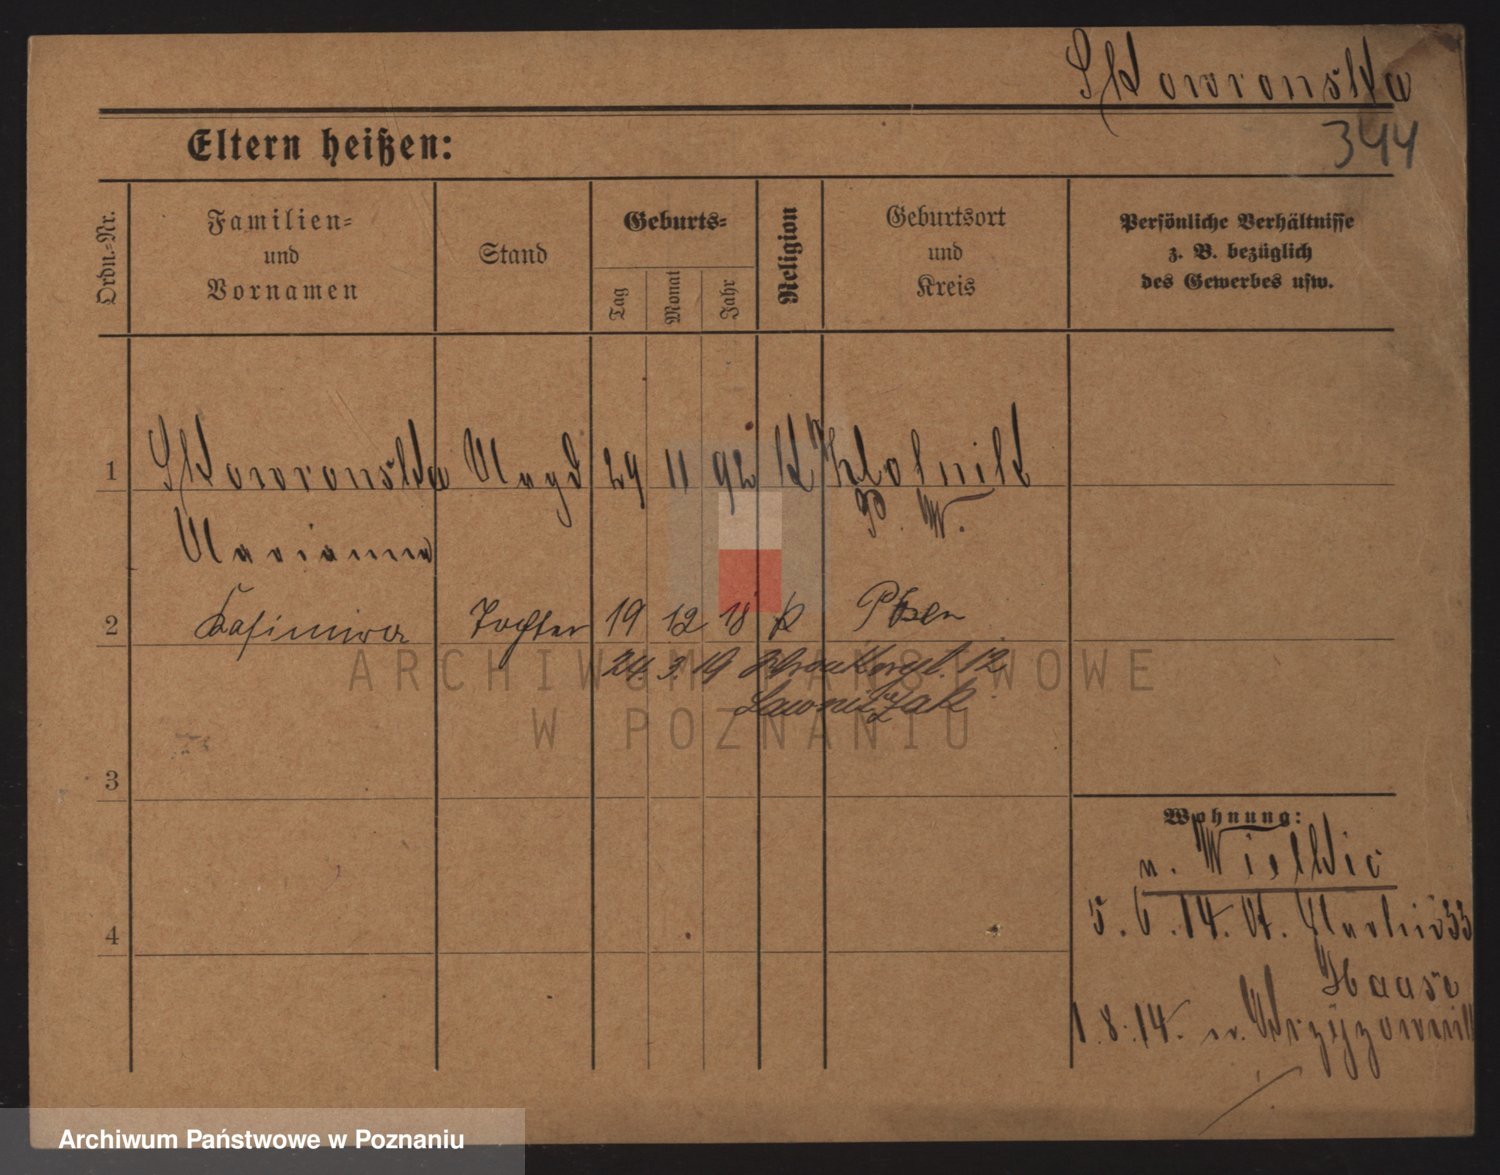 Skowronska
Eltern heißen:
344
Ordn.-Nr.
Familien-
und
Vornamen
Stand
Geburts-
Tag
Monat
Jahr
Religion
Geburtsort
und
Kreis
Persönliche Verhältnisse
z. B. bezüglich
des Gewerbes usw.
1 Skowronska Magd 29 11 92 K
P. W.
Marianna
2 Kasimira Tochter 19 12 18 K Posen
24. 3. 19 12
3
Wohnung:
n.
5. 6. 14. 33
4
Haase
1. 8. 14. n.
ARCHIWUM PAŃSTWOWE
W POZNANIU
Archiwum Państwowe w Poznaniu